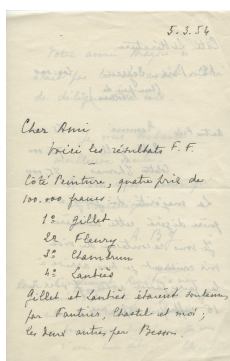 5.3.54
Cher Ami
voici les résultats F.F.
Côté Peinture, quatre prix de
100.000 francs
1º Gillet
2º Fleury
3º Chambrun
4º Lanbiès
Gillet et Lanbiès étaient soutenus
par Fautrier, Chastel et moi ;
les deux autres par Besson.